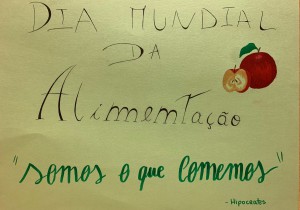 DIA MUNDIAL
DA
Alimentação
"somos o que comemos"
- Hipocrates